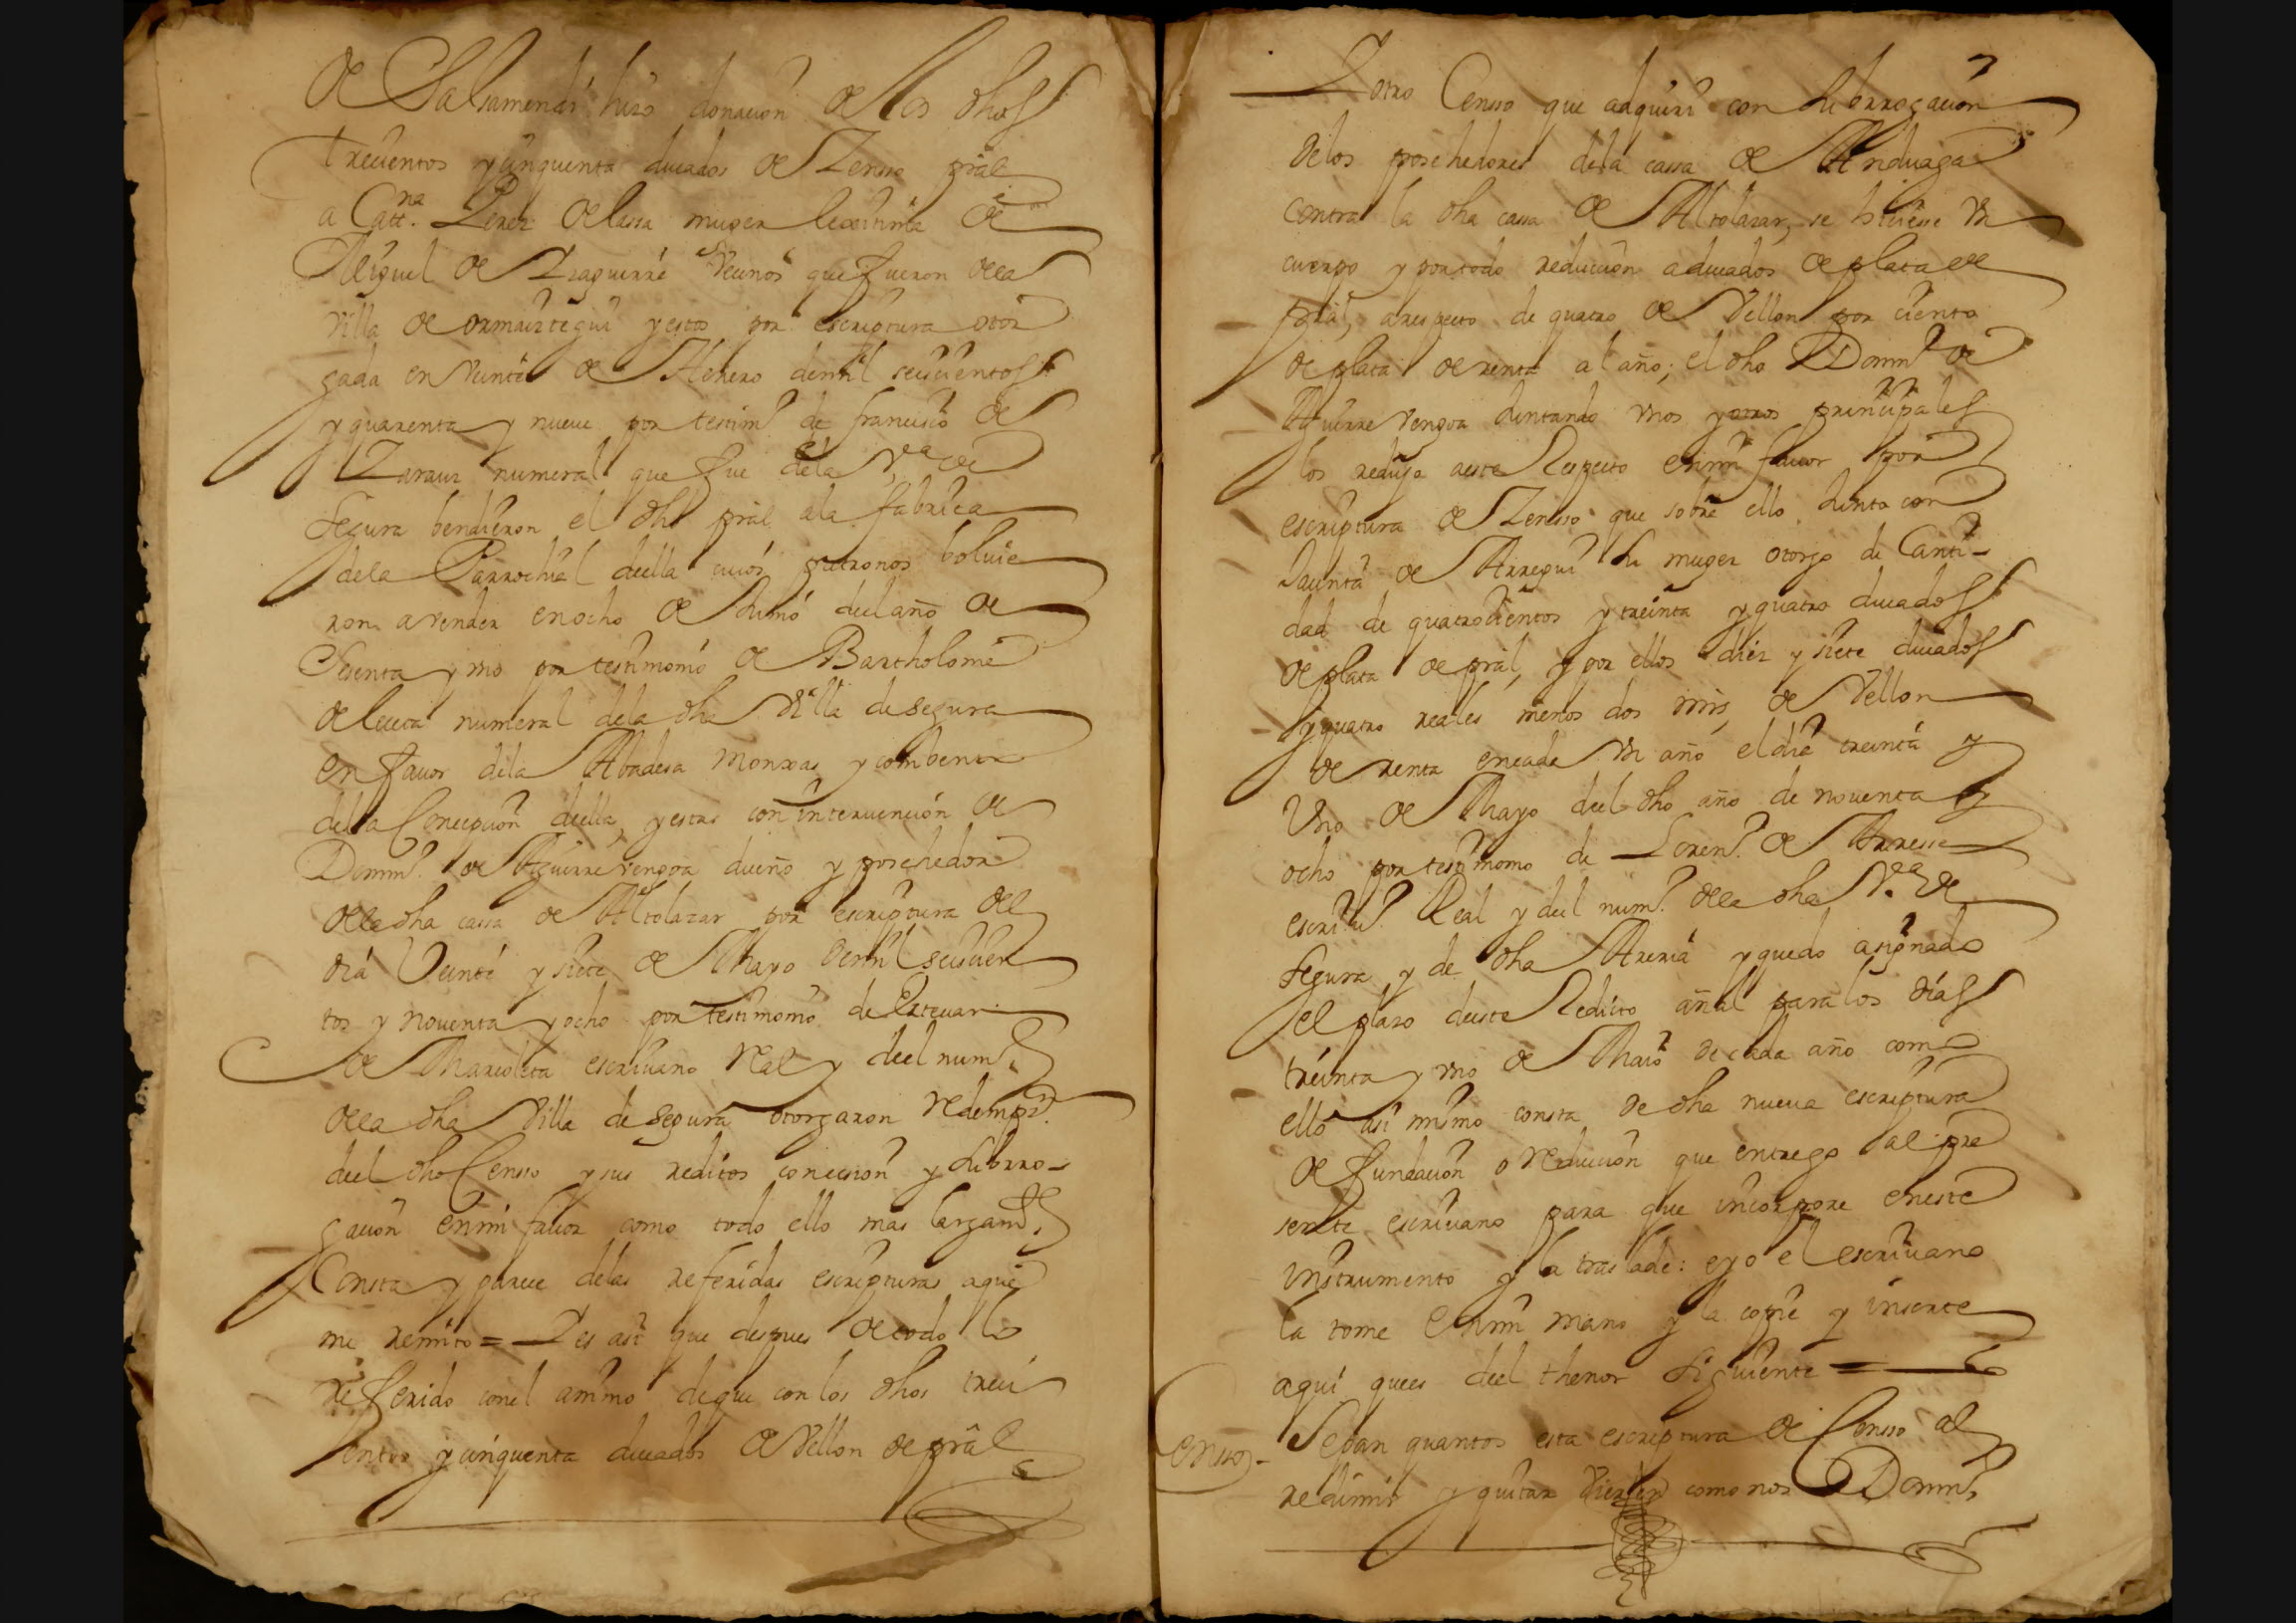 de Salsamendi hizo donacion de los dhos
trecientos y cinquenta ducados de Zenso pral
a Catt.na Perez de lassa muger lexitima de
Miguel de Yraguirre Vecinos que fueron de la
villa de ormaiztegui y estos por escriptura otor
gada en veinte de Henero de mil seiscientos
y quarenta y nueve por testimo de francisco de
Zarauz numeral que fue de la Va de
Segura bendieron el dho pral a la fabrica
de la Parrochial de ella cuios patronos bolvie
ron a vender en ocho de Junio de el año de
Sesenta y uno por testimonio de Bartholome
de leceta numeral de la dha villa de segura
en favor de la Abadesa Monxas y combento
de la Concepcion de ella, y estas con intervencion de
Domin.o de Aguirre vengoa dueño y poschedor
de la dha cassa de Altolazar por escriptura de el
dia Veinte y siete de Mayo de mil seiscien
tos y noventa y ocho por testimonio de Estevan
de Marcoleta escrivano Real y de el num.o
de la dha Villa de segura otorgaron redemp.on
de el dho Censso y sus reditos con cesion y subrro-
gacion en mi favor como todo ello mas largam.te
Consta y parece de las referidas escripturas a que
me remito = Y es asi que despues de todo lo
referido con el animo de que con los dhos treci
entos y cinquenta ducados de Vellon de pral
Y otro Censso que adquiri con subrrogacion
de los poschedores de la cassa de Anduaga
contra la dha cassa de Altolazar, se hiciesse un
cuerpo y por todo reducion a ducados de plata de
pral, a respecto de quatro de Vellon por ciento
de plata de renta al año; el dho Domin.o de
Aguirre vengoa Juntando unos y otros principales
los redujo a este Respecto en mi favor por
escriptura de Zensso que sobre ello Junto con
Jacinta de Arregui su muger otorgo de Canti-
dad de quatrocientos y treinta y quatro ducados
de plata de pral, y por ellos diez y siete ducados
y quatro reales menos dos mrs de Vellon
de renta en cada un año el dia treinta y
Uno de Mayo de el dho año de noventa y
ocho por testimonio de Loren.o de Arresse
escriv.o Real y de el num.o de la dha V.a de
Segura y de dha Areria y quedo asignado
el plazo de este Redito añal para los dias
treinta y uno de Maio de cada año como
ello asi mismo consta de dha nueva escriptura
de fundacion o reducion que entrego al pre
sente escrivano para que incorpore en este
instrumento y la traslade: e yo el escrivano
la tome en mi mano y la copie y inserte
aqui que es de el thenor siguiente =
Censso- Sepan quantos esta escriptura de Censso al
redimir y quitar vieren como nos Domin.o